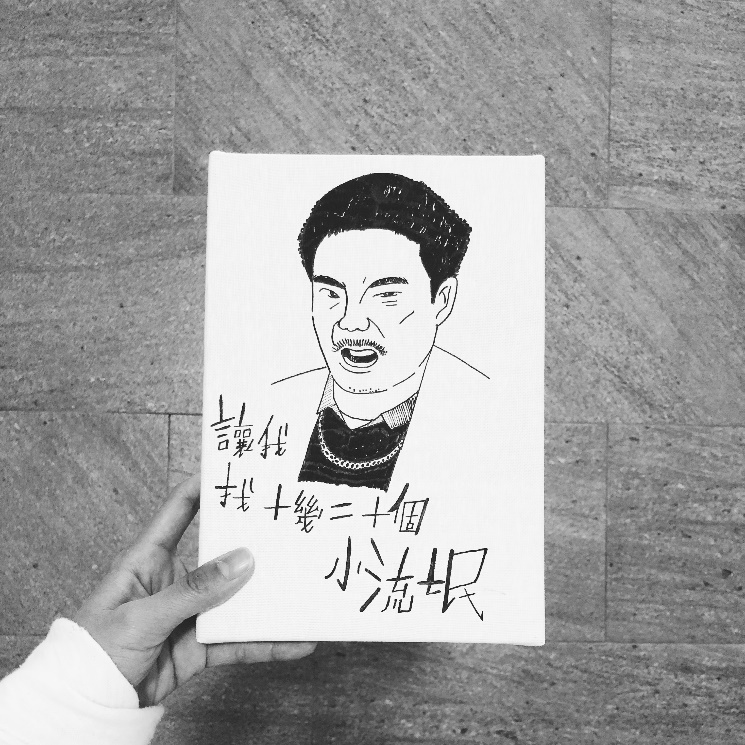 讓我
找十幾二十個
小流氓